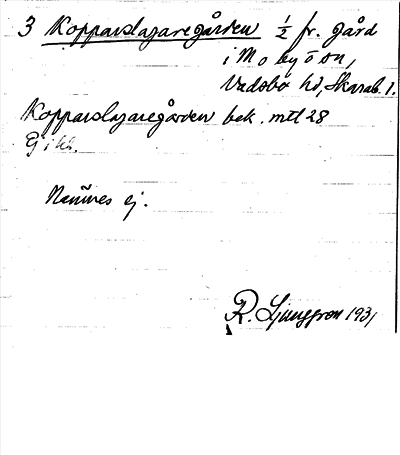 3 Kopparslagaregården ½ fr. gård
i Mo by o sn,
Vadsbo hd, Skarab. l.
Kopparslagaregården bek. mtl 28
Nämnes ej.
R. Ljunggren 1931